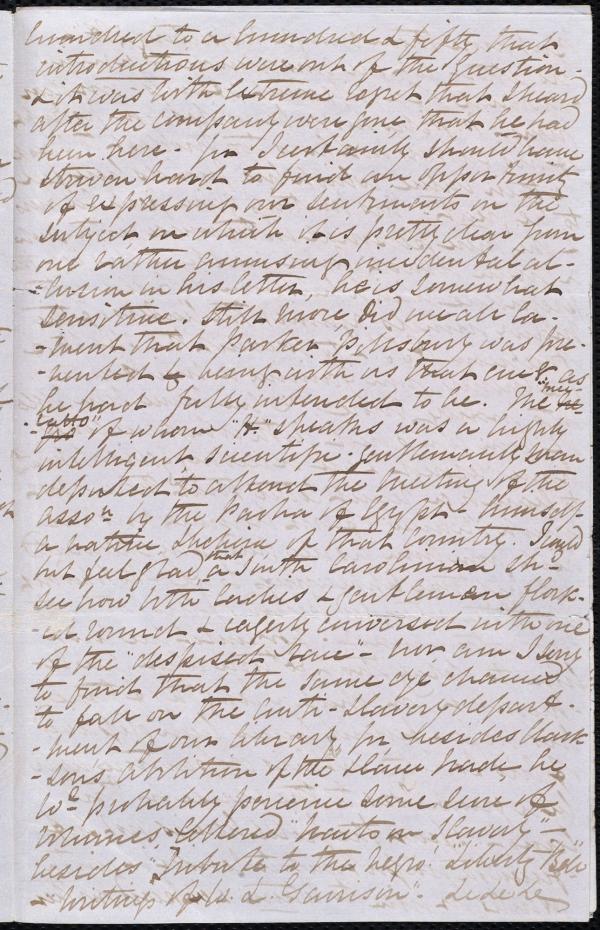 hundred to a hundred & fifty that
introductions were out of the question -
- & it was with extreme regret that I heard
after the company were gone that he had
been here - for I certainly should have
striven hard to find an opportunity
of expressing our sentiments on the
subject on which it is pretty clear from
one rather amusing incidental al-
-lusion in his letter, he is somewhat
sensitive. Still more did we all la-
-ment that Parker Pillsbury was pre-
-vented being with us that eve & as
he had fully intended to be. The "mu
-latto" of whom "H" speaks was a highly
intelligent, scientific - gentlemanly man
deputed to attend the meeting of the
asson by the Pasha of Egypt - himself
a native, I believe of that country. I could
not feel glad that a South Carolinian shd
see how both ladies & gentlemen flock-
-ed round & eagerly conversed with one
of the "despised race" - nor am I sorry
to find that the same eye chanced
to fall on the anti-slavery depart-
-ment of our library for besides Clark-
-son's abolition of the "slave trade, he
wd probably perceive some five of
volumes, lettered "tracts on Slavery" -
besides "Tribute to the Negro" "Liberty Bell"
- "Writings of W. L. Garrison" -